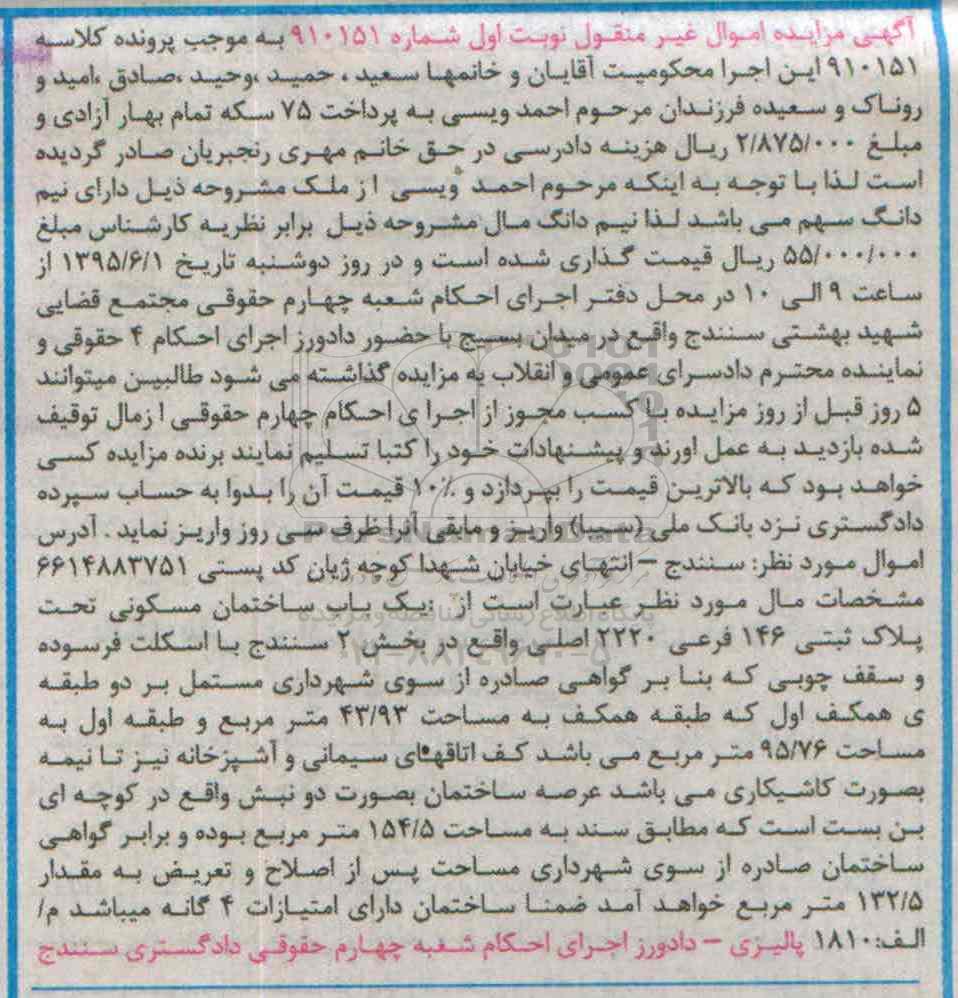 آگهی مزایده اموال غیر منقول نوبت اول شماره ۹۱۰۱۵۱ به موجب پرونده کلاسه
۹۱۰۱۵۱ این اجرا محکومیت آقایان و خانمها سعید ، حمید ،وحید ،صادق ،امید و
روناک و سعیده فرزندان مرحوم احمد ویسی به پرداخت ۷۵ سکه تمام بهار آزادی و
مبلغ ۲/۸۷۵/۰۰۰ ریال هزینه دادرسی در حق خانم مهری رنجبریان صادر گردیده
است لذا با توجه به اینکه مرحوم احمد ویسی از ملک مشروحه ذیل دارای نیم
دانگ سهم می باشد لذا نیم دانگ مال مشروحه ذیل برابر نظریه کارشناس مبلغ
۵۵/۰۰۰/۰۰۰ ریال قیمت گذاری شده است و در روز دوشنبه تاریخ ۱۳۹۵/۶/۱ از
ساعت ۹ الی ۱۰ در محل دفتر اجرای احکام شعبه چهارم حقوقی مجتمع قضایی
شهید بهشتی سنندج واقع در میدان بسیج با حضور دادورز اجرای احکام ۴ حقوقی و
نماینده محترم دادسرای عمومی و انقلاب به مزایده گذاشته می شود طالبین میتوانند
۵ روز قبل از روز مزایده با کسب مجوز از اجرا ی احکام چهارم حقوقی ا زمال توقیف
شده بازدید به عمل اورند و پیشنهادات خود را کتبا تسلیم نمایند برنده مزایده کسی
خواهد بود که بالاترین قیمت را بپردازد و ۱۰٪ قیمت آن را بدوا به حساب سپرده
دادگستری نزد بانک ملی (سیبا) واریز و مابقی آنرا ظرف سی روز واریز نماید . آدرس
اموال مورد نظر: سنندج – انتهای خیابان شهدا کوچه ژیان کد پستی ۶۶۱۴۸۸۳۷۵۱
مشخصات مال مورد نظر عبارت است از :یک باب ساختمان مسکونی تحت
پلاک ثبتی ۱۴۶ فرعی ۲۲۲۰ اصلی واقع در بخش ۲ سنندج با اسکلت فرسوده
و سقف چوبی که بنا بر گواهی صادره از سوی شهرداری مستمل بر دو طبقه
ی همکف اول که طبقه همکف به مساحت ۴۳/۹۳ متر مربع و طبقه اول به
مساحت ۹۵/۷۶ متر مربع می باشد کف اتاقهای سیمانی و آشپزخانه نیز تا نیمه
بصورت کاشیکاری می باشد عرصه ساختمان بصورت دو نبش واقع در کوچه ای
بن بست است که مطابق سند به مساحت ۱۵۴/۵ متر مربع بوده و برابر گواهی
ساختمان صادره از سوی شهرداری مساحت پس از اصلاح و تعریض به مقدار
۱۳۲/۵ متر مربع خواهد آمد ضمنا ساختمان دارای امتیازات ۴ گانه میباشد م/
الف:۱۸۱۰ پالیزی – دادورز اجرای احکام شعبه چهارم حقوقی دادگستری سنندج